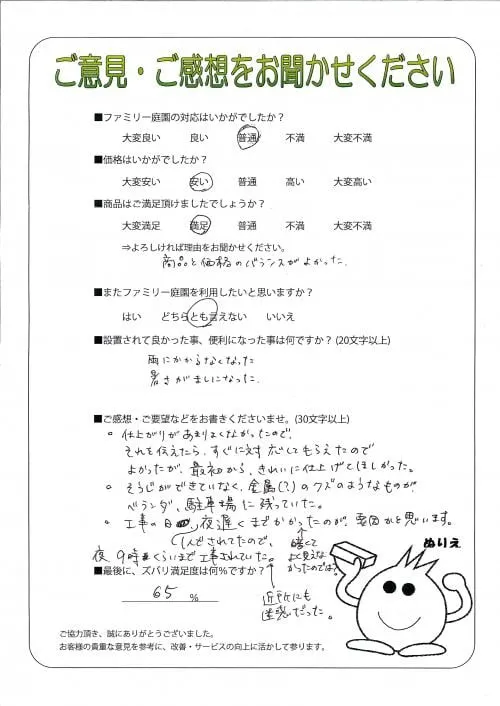 ご意見・ご感想をお聞かせください
■ファミリー庭園の対応はいかがでしたか？
大変良い 良い 普通 不満 大変不満
■価格はいかがでしたか？
大変安い 安い 普通 高い 大変高い
■商品はご満足頂けましたでしょうか？
大変満足 満足 普通 不満 大変不満
⇒よろしければ理由をお聞かせください。
商品と価格のバランスがよかった。
■またファミリー庭園を利用したいと思いますか？
はい どちらとも言えない いいえ
■設置されて良かった事、便利になった事は何ですか？(20文字以上)
雨にかからなくなった
暑さがましになった。
■ご感想・ご要望などをお書きくださいませ。(30文字以上)
○ 仕上がりがあまりよくなかったので、
それを伝えたら、すぐに対応してもらえたので
よかったが、最初から、きれいに仕上げてほしかった。
○ そうじができていなく、金属(?)のクズのようなものが
ベランダ、駐車場に残っていた。
○ 工事の日、夜遅くまでかかったのが、要因かと思います。
1人でされてたので、
夜9時くらいまで工事されていた。
暗くて
よく見えな
かったのでは?
近所にも
迷惑だった。
ぬりえ
■最後に、ズバリ満足度は何％ですか？
65 ％
ご協力頂き、誠にありがとうございました。
お客様の貴重な意見を参考に、改善・サービスの向上に活かして参ります。